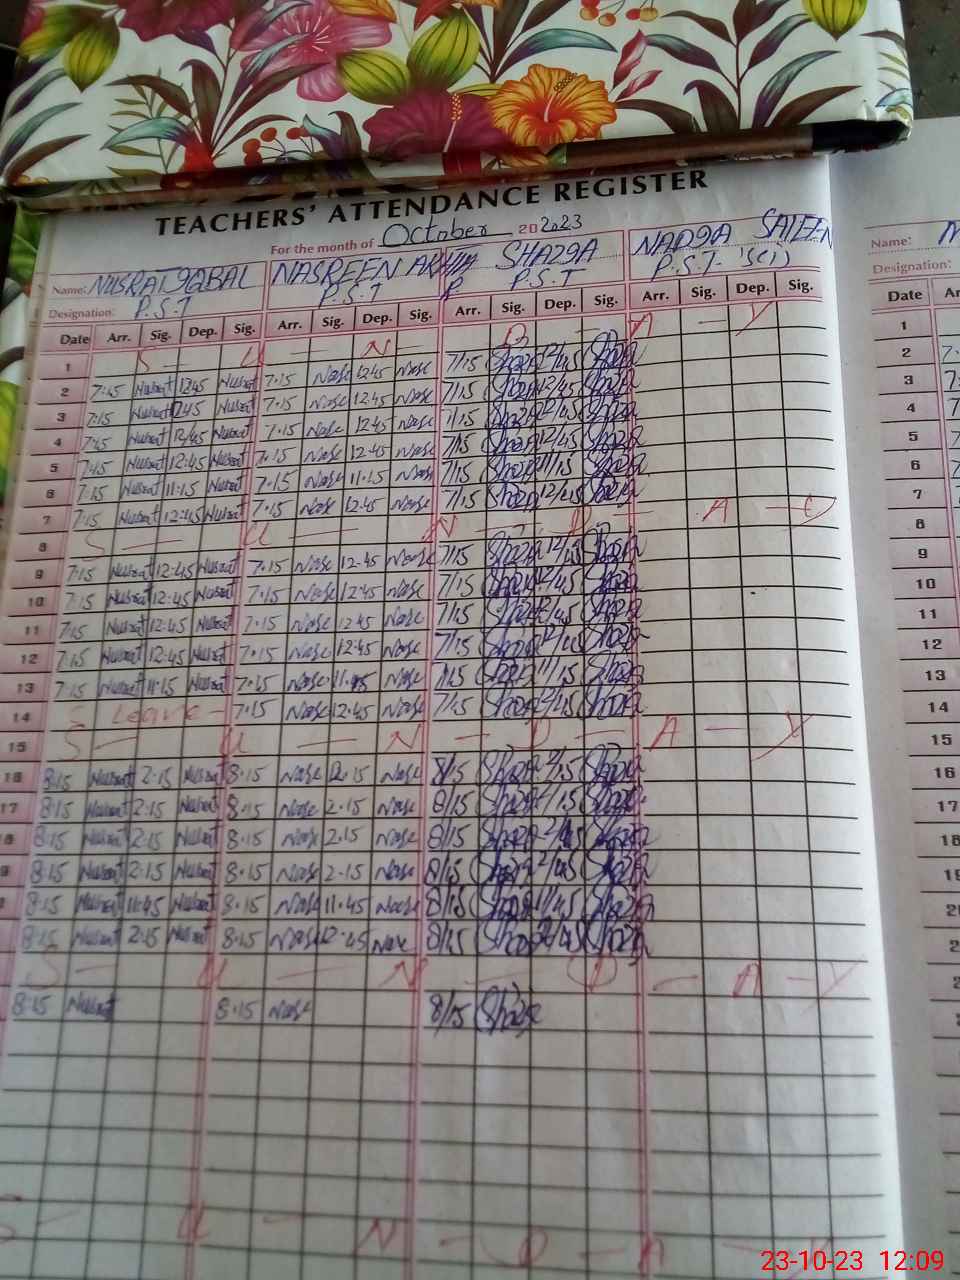 TEACHERS' ATTENDANCE REGISTER
For the month of October 20 2023
Name: NUSRAT IQBAL NASREEN SHAZIA NADIA Name:
Designation: P.S.T P.S.T P.S.T P.S.T. Designation:
Date Arr. Sig. Dep. Sig. Arr. Sig. Dep. Sig. Arr. Sig. Dep. Sig. Arr. Sig. Dep. Sig. Date
1 S U N D A Y 1
2 7:15 Nusrat 12:45 Nusrat 7.15 Nase 12.45 Nase 7/15 Shazia 12/45 Shazia 2
3 7:15 Nusrat 12:45 Nusrat 7.15 Nase 12.45 Nase 7/15 Shazia 12/45 Shazia 3
4 7:15 Nusrat 12/45 Nusrat 7.15 Nase 12.45 Nase 7/15 Shazia 12/45 Shazia 4
5 7:15 Nusrat 12:45 Nusrat 7.15 Nase 12.45 Nase 7/15 Shazia 12/45 Shazia 5
6 7:15 Nusrat 11:15 Nusrat 7.15 Nase 11.15 Nase 7/15 Shazia 11/15 Shazia 6
7 7:15 Nusrat 12:45 Nusrat 7.15 Nase 12.45 Nase 7/15 Shazia 12/45 Shazia 7
8 S U N D A Y 8
9 7:15 Nusrat 12:45 Nusrat 7.15 Nase 12.45 Nase 7/15 Shazia 12/45 Shazia 9
10 7:15 Nusrat 12:45 Nusrat 7.15 Nase 12.45 Nase 7/15 Shazia 12/45 Shazia 10
11 7:15 Nusrat 12:45 Nusrat 7.15 Nase 12.45 Nase 7/15 Shazia 12/45 Shazia 11
12 7:15 Nusrat 12:45 Nusrat 7.15 Nase 12.45 Nase 7/15 Shazia Shazia 12
13 7:15 Nusrat 11:15 Nusrat 7.15 Nase Nase 7/15 Shazia 11/15 Shazia 13
14 Leave 7.15 Nase 12.45 Nase 7/15 Shazia 12/45 Shazia 14
15 S U N D A Y 15
16 8:15 Nusrat 2:15 Nusrat 8.15 Nase Nase 8/15 Shazia 2/15 Shazia 16
17 8:15 Nusrat 2:15 Nusrat 8.15 Nase 2.15 Nase 8/15 Shazia 2/15 Shazia 17
8:15 Nusrat 2:15 Nusrat 8.15 Nase 2.15 Nase 8/15 Shazia Shazia 18
8:15 Nusrat 2:15 Nusrat 8.15 Nase 2.15 Nase 8/15 Shazia Shazia
8:15 Nusrat 11:45 Nusrat 8.15 Nase 11.45 Nase 8/15 Shazia 11/45 Shazia
8:15 Nusrat 2:15 Nusrat 8.15 Nase 12.45 Nase 8/15 Shazia Shazia
S U N D A Y
8:15 Nusrat 8.15 Nase 8/15 Shazia
S U N D A Y
23-10-23 12:09